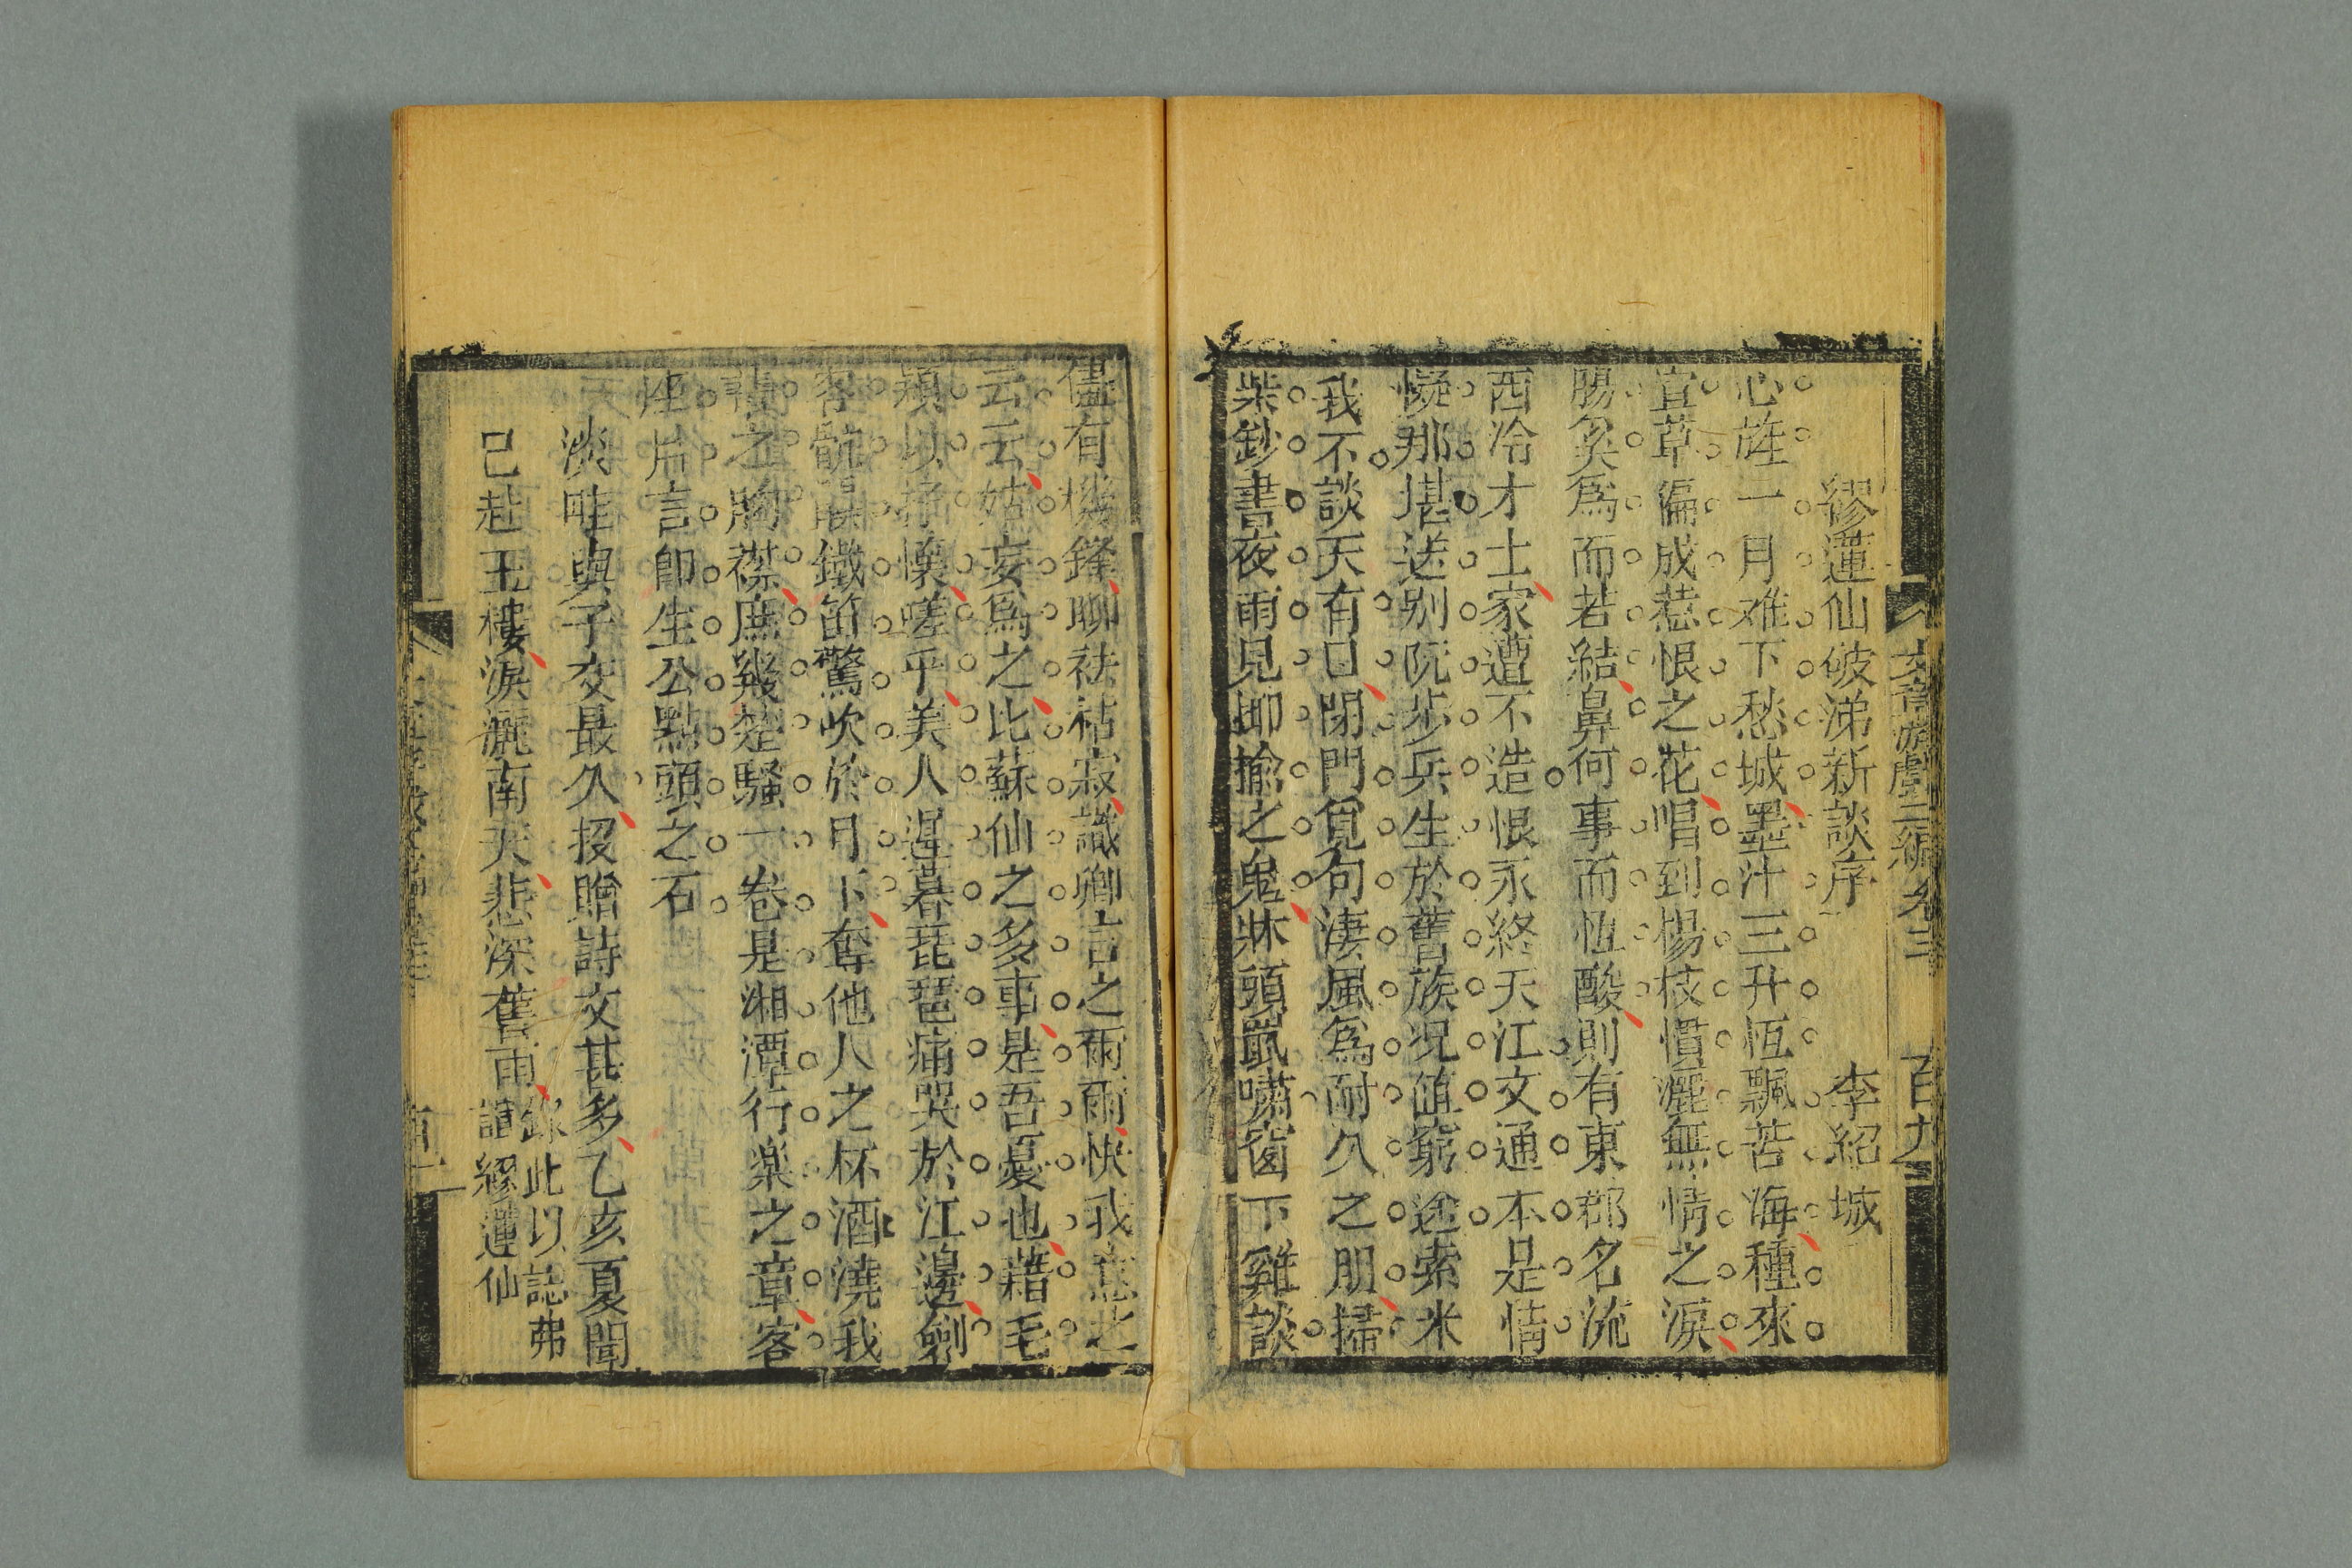 繆蓮仙破涕新談序　李紹城
心旌一月难下愁城墨汁三升恆飄苦海種來
宜草徧成惹恨之花唱到楊枝慣灑無情之淚
腸奚爲而若結鼻何事而恆酸則有東郡名流
西泠才士家遭不造恨永終天江文通本是情
癡那堪送别阮步兵生於舊族况値窮途索米
我不談天有口閉門覓句凄風爲耐久之朋掃
柴鈔書夜雨見揶揄之鬼牀頭鼠嘯窗下雞談
儘有機鋒聊祛枯寂識卿言之爾爾快我意之
云云姑妄爲之比蘇仙之多事是吾憂也藉毛
頴以抒懷嗟乎美人遲暮琵琶痛哭於江邊劍
客骯髒鐵笛驚吹於月下奪他人之杯酒澆我
之胸襟庶幾楚騷一卷是湘潭行樂之章客
座片言即生公點頭之石
淡畦與子交最久投贈詩文甚多乙亥夏聞
已赴玉樓淚灑南天悲深舊雨錄此以誌弗
諼繆蓮仙
文章游戲二編卷三
百九